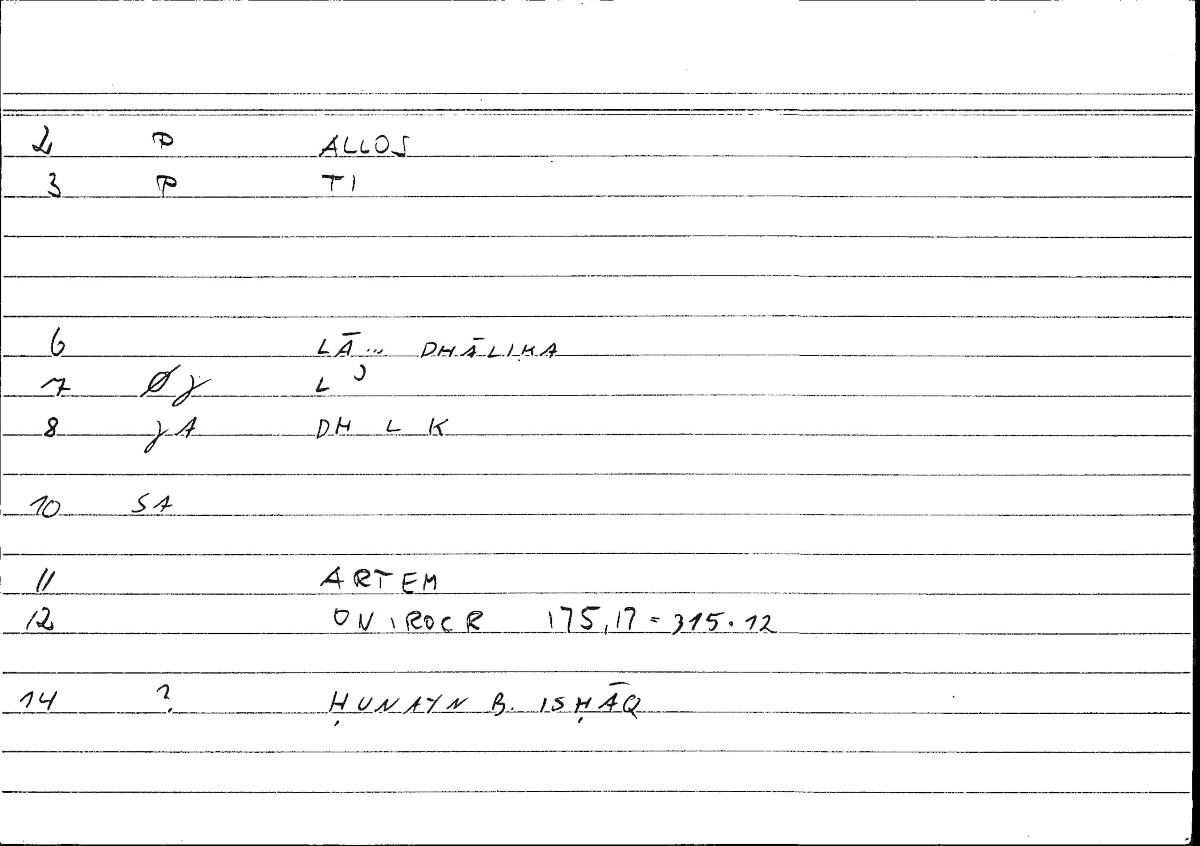 2 P ALLOS
3 P TI
6 LĀ... DHĀLIKA
7 Ø γ L ʾ
8 γ A DH L K
10 SA
11 ARTEM
12 ONIROCR 175,17 = 315.12
14 ? ḤUNAYN B. ISḤĀQ